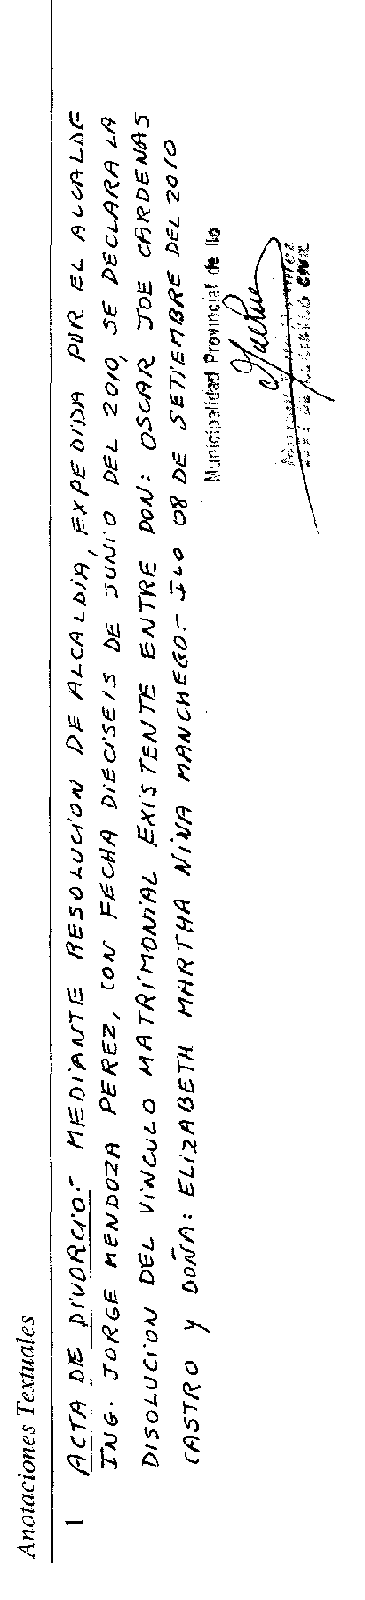 Anotaciones Textuales
1 ACTA DE DIVORCIO.- MEDIANTE RESOLUCION DE ALCALDIA, EXPEDIDA POR EL ALCALDE
ING. JORGE MENDOZA PEREZ, CON FECHA DIECISEIS DE JUNIO DEL 2010, SE DECLARA LA
DISOLUCION DEL VINCULO MATRIMONIAL EXISTENTE ENTRE DON: OSCAR JOE CARDENAS
CASTRO Y DOÑA: ELIZABETH MARTHA NINA MANCHEGO.- ILO 08 DE SETIEMBRE DEL 2010
Municipalidad Provincial de Ilo
CIVIL